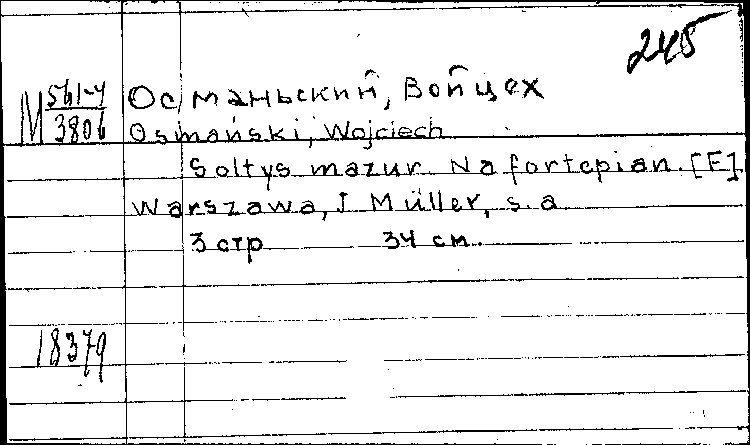 245
М 561-4
3806
Осмањский, Войцех
Osmański, Wojciech
Soltys mazur. Na fortepian. [F].
Warszawa, J. Müller, s. a.
3 стр. 34 см.
18379